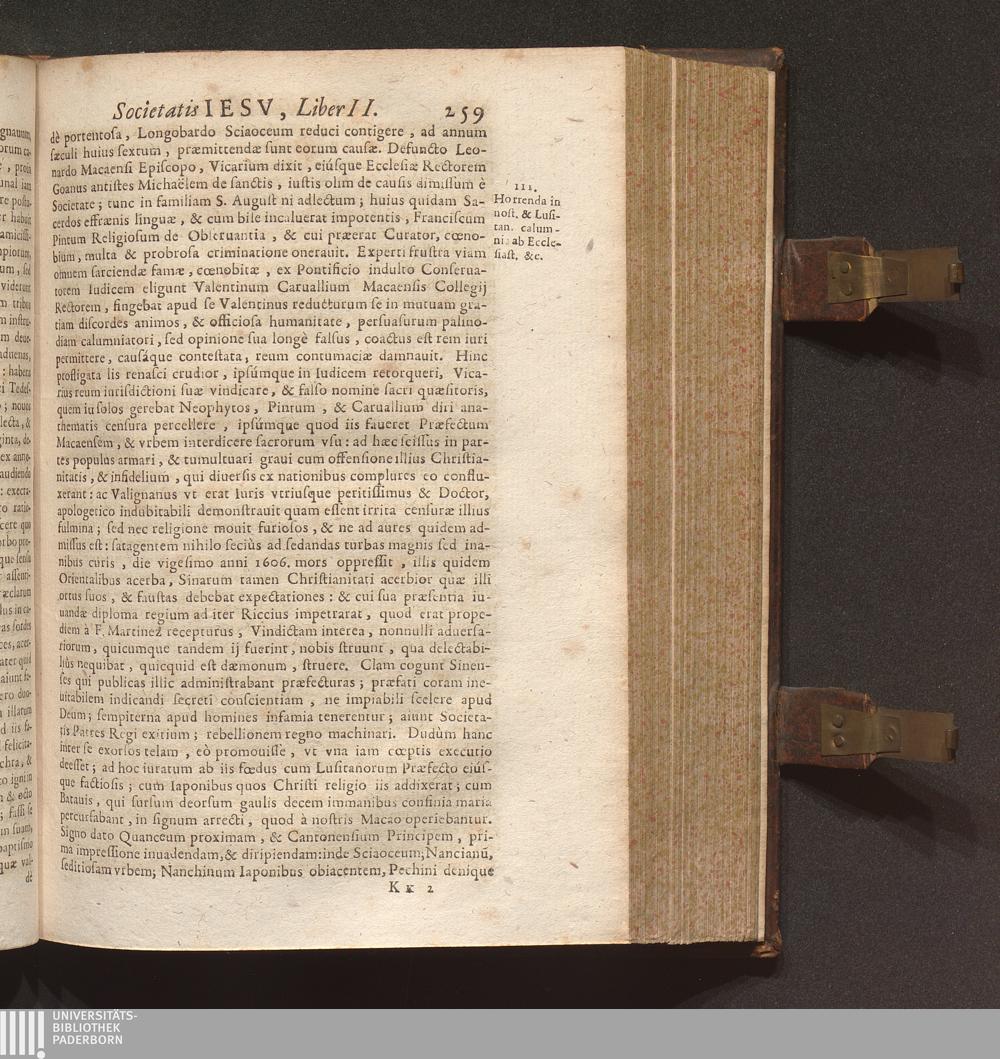 Societatis IESV, Liber II. 259
dè portentosa, Longobardo Sciaoceum reduci contigere, ad annum
sæculi huius sextum, præmittendæ sunt eorum causæ. Defuncto Leo-
nardo Macaensi Episcopo, Vicarium dixit, eiúsque Ecclesiæ Rectorem
Goanus antistes Michaëlem de sanctis, iustis olim de causis dimissum è
Societate; tunc in familiam S. August ni adlectum; huius quidam Sa-
cerdos effrænis linguæ, & cum bile incaluerat impotentis, Franciscum
Pintum Religiosum de Obseruantia, & cui præerat Curator, cœno-
bium, multa & probrosa criminatione onerauit. Experti frustra viam
omnem sarciendæ famæ, cœnobitæ, ex Pontificio indulto Conserua-
torem Iudicem eligunt Valentinum Caruallium Macaensis Collegij
Rectorem, fingebat apud se Valentinus reducturum se in mutuam gra-
tiam discordes animos, & officiosa humanitate, persuasurum palino-
diam calumniatori, sed opinione sua longè falsus, coactus est rem iuri
permittere, causáque contestata, reum contumaciæ damnauit. Hinc
profligata lis renasci crudior, ipsúmque in Iudicem retorqueri, Vica-
rius reum iurisdictioni suæ vindicare, & falso nomine sacri quæsitoris,
quem iu solos gerebat Neophytos, Pintum, & Caruallium diri ana-
thematis censura percellere, ipsúmque quod iis faueret Præfectum
Macaensem, & vrbem interdicere sacrorum vsu: ad hæc scissus in par-
tes populus armari, & tumultuari graui cum offensione illius Christia-
nitatis, & infidelium, qui diuersis ex nationibus complures eo conflu-
xerant: ac Valignanus vt erat Iuris vtriusque peritissimus & Doctor,
apologetico indubitabili demonstrauit quam essent irrita censuræ illius
fulmina; sed nec religione mouit furiosos, & ne ad aures quidem ad-
missus est: satagentem nihilo seciùs ad sedandas turbas magnis sed ina-
nibus curis, die vigesimo anni 1606. mors oppressit, illis quidem
Orientalibus acerba, Sinarum tamen Christianitati acerbior quæ illi
ortus suos, & faustas debebat expectationes: & cui sua præsentia iu-
uandæ diploma regium ad iter Riccius impetrarat, quod erat prope-
diem à F. Martinez recepturus, Vindictam interea, nonnulli aduersa-
riorum, quicumque tandem ij fuerint, nobis struunt, qua delectabi-
liùs nequibat, quicquid est dæmonum, struere. Clam cogunt Sinen-
ses qui publicas illic administrabant præfecturas; præfati coram ine-
uitabilem indicandi secreti conscientiam, ne impiabili scelere apud
Deum; sempiterna apud homines infamia tenerentur; aiunt Societa-
tis Patres Regi exitium; rebellionem regno machinari. Dudùm hanc
inter se exorsos telam, eò promouisse, vt vna iam cœptis executio
deesset; ad hoc iuratum ab iis fœdus cum Lusitanorum Præfecto eiús-
que factiosis; cum Iaponibus quos Christi religio iis addixerat; cum
Batauis, qui sursum deorsum gaulis decem immanibus confinia maria
percursabant, in signum arrecti, quod à nostris Macao operiebantur.
Signo dato Quanceum proximam, & Cantonensium Principem, pri-
ma impressione inuadendam, & diripiendam: inde Sciaoceum; Nancianũ,
seditiosam vrbem; Nanchinum Iaponibus obiacentem, Pechini denique
Kk 2
III.
Horrenda in
nost. & Lusi-
tan. calum-
nia ab Eccle-
siast. &c.
UNIVERSITÄTS-
BIBLIOTHEK
PADERBORN